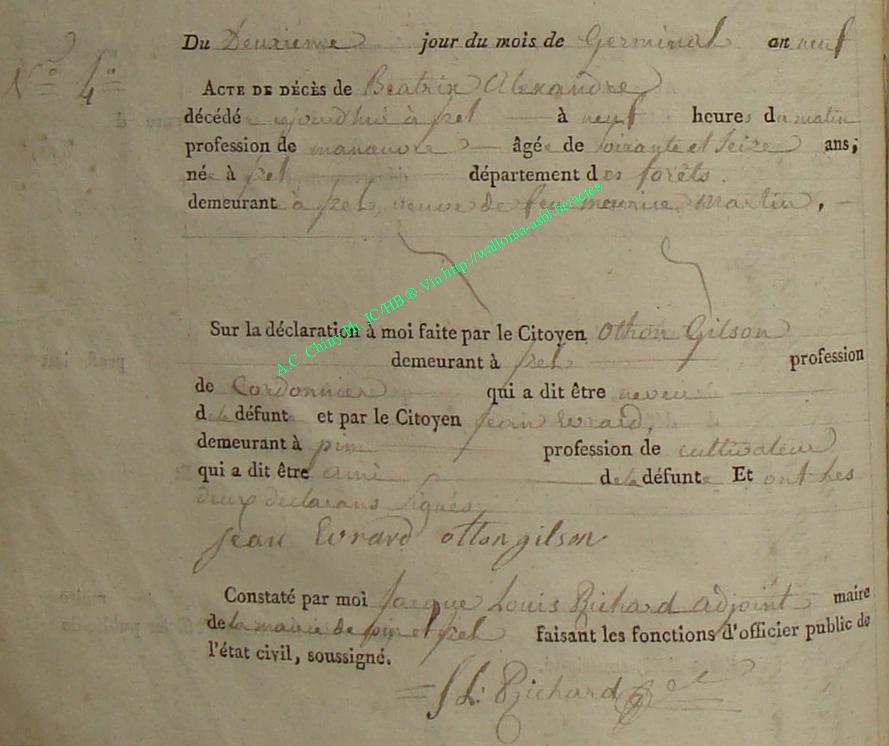 Du Deuxième jour du mois de Germinal an neuf
N.º 4.º
ACTE DE DÉCÈS de Beatrix Alexandre
décédé e ajourdhui à izel à neuf heures du matin
profession de manœuvre âgée de soixante et seize ans;
née à izel département des forêts.
demeurant à izel, veuve de feu maurice Martin,
A.C. Chiny Ph. JC/HB ® Via http://wallonia-asbl.be/actes
Sur la déclaration à moi faite par le Citoyen Othon Gilson
demeurant à izel profession
de Cordonnier qui a dit être neveu
de la défunte et par le Citoyen jean Evrard,
demeurant à pin profession de cultivateur
qui a dit être ami de la défunte Et ont les
deux declarans signés
jean Evrard otton gilson
Constaté par moi Jacque Louis Richard adjoint maire
de la mairie de pin et izel faisant les fonctions d'officier public de
l'état civil, soussigné.
J L: Richard